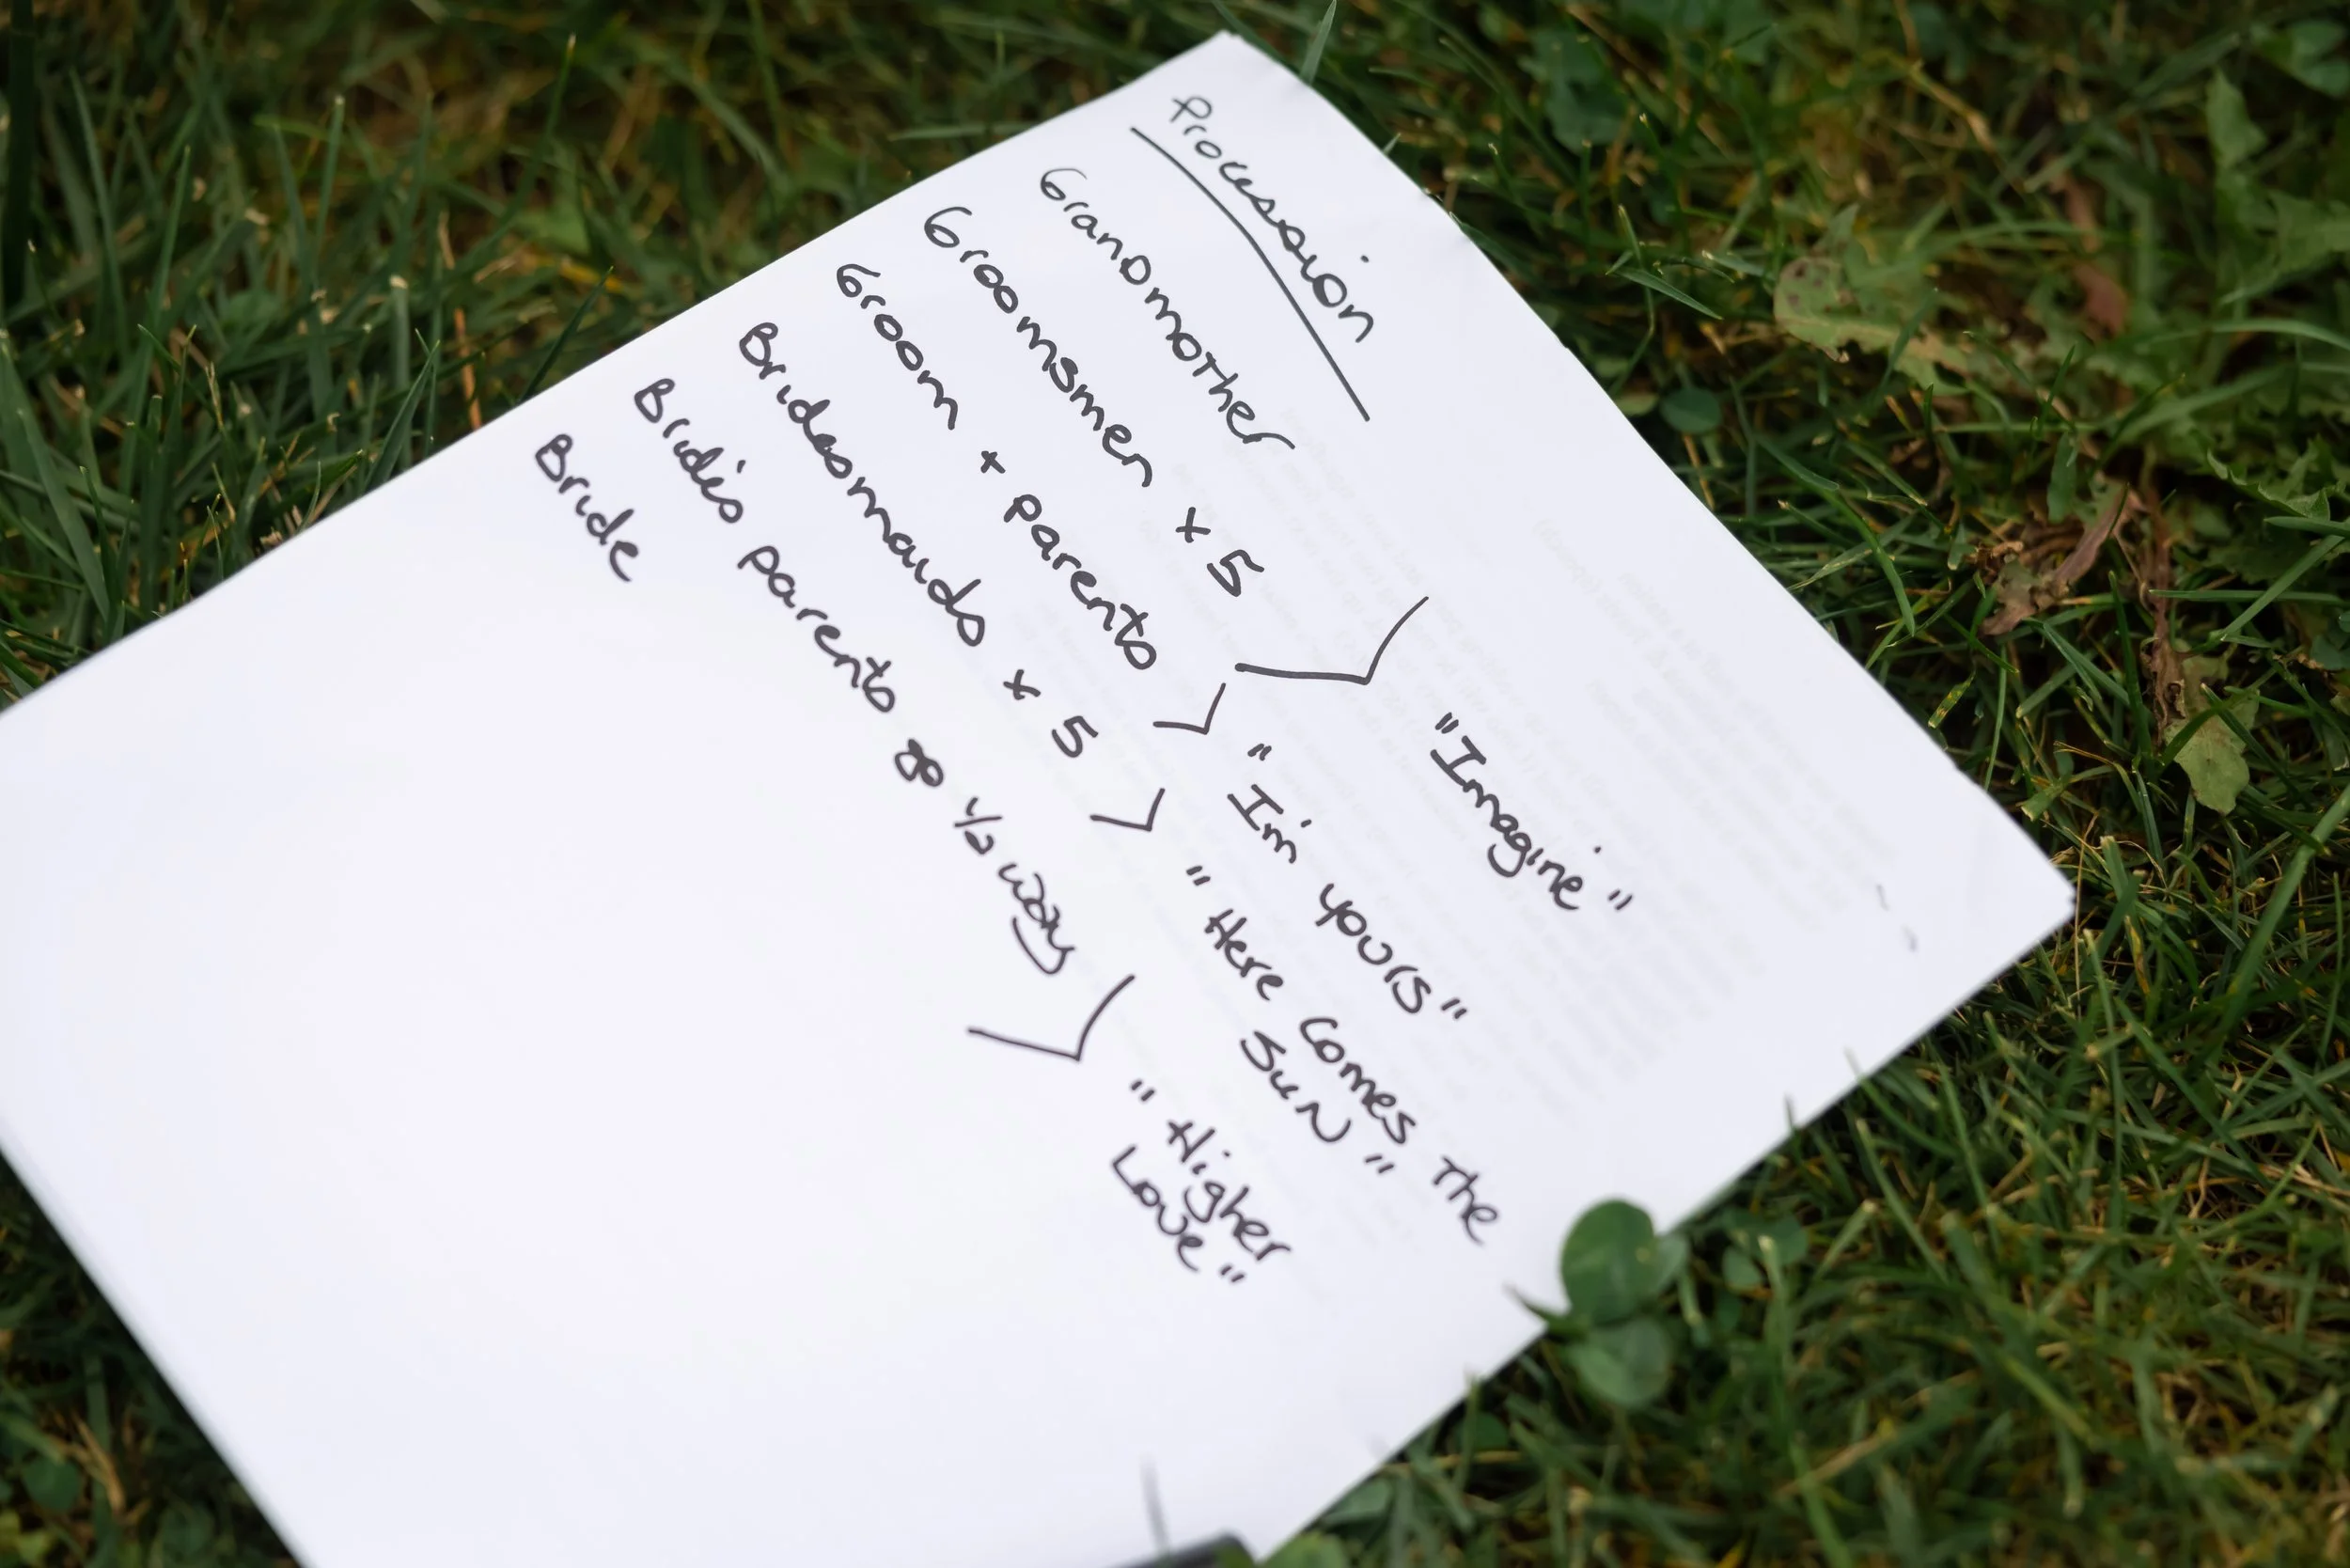 Procession
Grandmother
Groomsmen x 5
"Imagine"
Groom + parents
"I'm yours"
Bridesmaids x 5
"Here Comes The
Sun"
Bride's parents go 1/2 way
Bride
"Higher
Love"